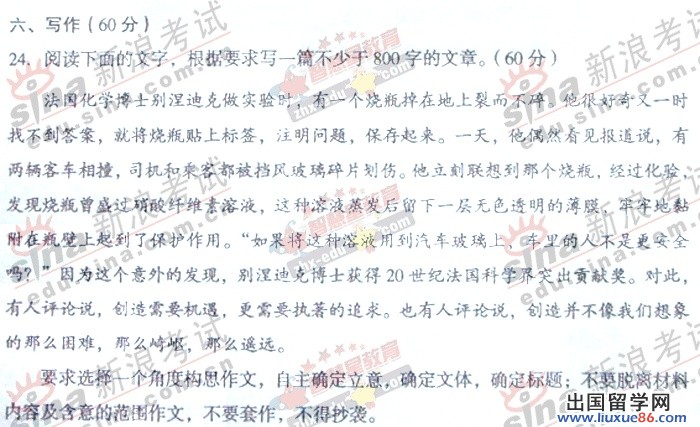 六、写作（60 分）
24．阅读下面的文字，根据要求写一篇不少于 800 字的文章。（60 分）
法国化学博士别涅迪克做实验时，有一个烧瓶掉在地上裂而不碎。他很好奇又一时
找不到答案，就将烧瓶贴上标签，注明问题，保存起来。一天，他偶然看见报道说，有
两辆客车相撞，司机和乘客都被挡风玻璃碎片划伤。他立刻联想到那个烧瓶，经过化验，
发现烧瓶曾盛过硝酸纤维素溶液，这种溶液蒸发后留下一层无色透明的薄膜，牢牢地黏
附在瓶壁上起到了保护作用。“如果将这种溶液用到汽车玻璃上，车里的人不是更安全
吗？”因为这个意外的发现，别涅迪克博士获得 20 世纪法国科学界突出贡献奖。对此，
有人评论说，创造需要机遇，更需要执著的追求。也有人评论说，创造并不像我们想象
的那么困难，那么崎岖，那么遥远。
要求选择一个角度构思作文，自主确定立意，确定文体，确定标题；不要脱离材料
内容及含意的范围作文，不要套作，不得抄袭。
sina 新浪考试
edu.sina.com.cn
智康教育
出国留学网
www.liuxue86.com